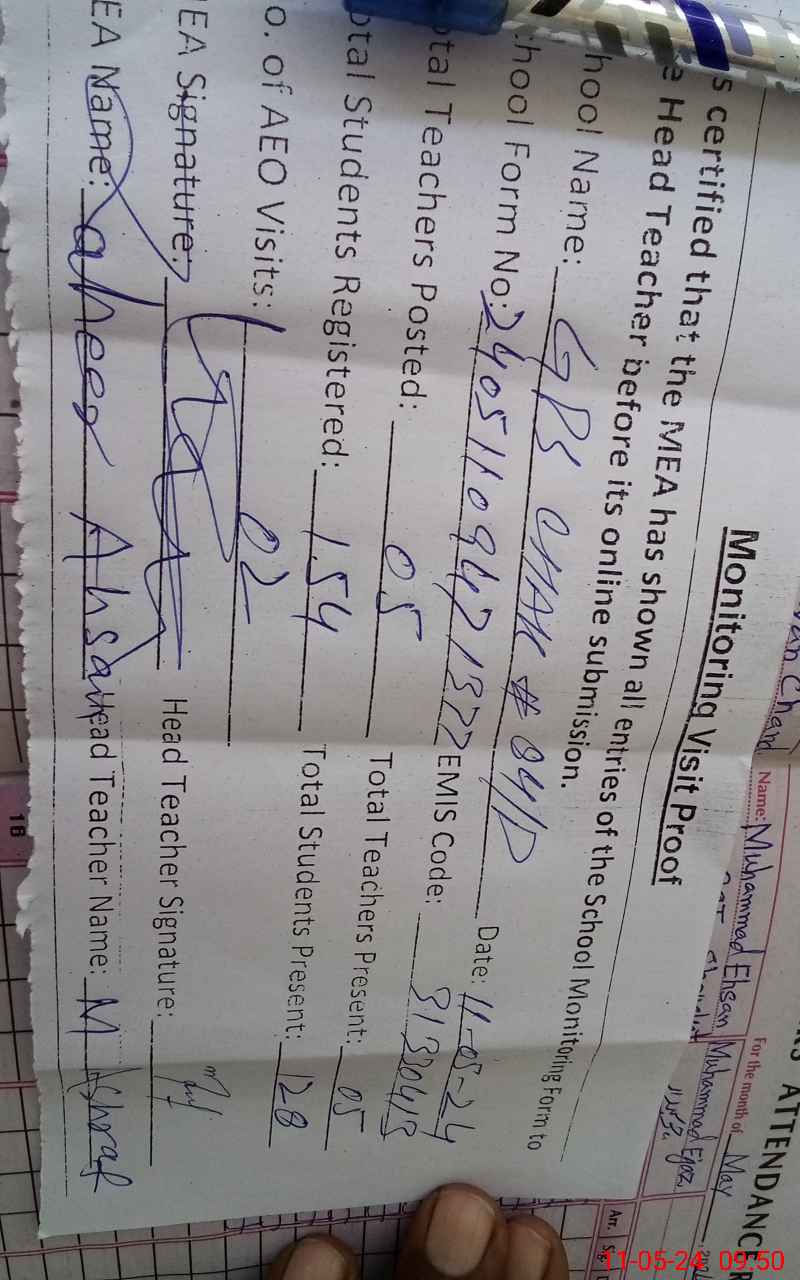 Monitoring Visit Proof
s certified that the MEA has shown all entries of the School Monitoring Form to
e Head Teacher before its online submission.
hool Name: GPS CHAK # 84/D Date: 11-05-24
hool Form No: EMIS Code: 31330413
otal Teachers Posted: 05 Total Teachers Present: 05
otal Students Registered: 154 Total Students Present: 128
o. of AEO Visits: 02
EA Signature: Head Teacher Signature:
EA Name: Ahsan Head Teacher Name: M Ashraf
ATTENDANCE
For the month of May
Name: Muhammad Ehsan Muhammad Ejaz
Arr. Sig
18
11-05-24 09:50